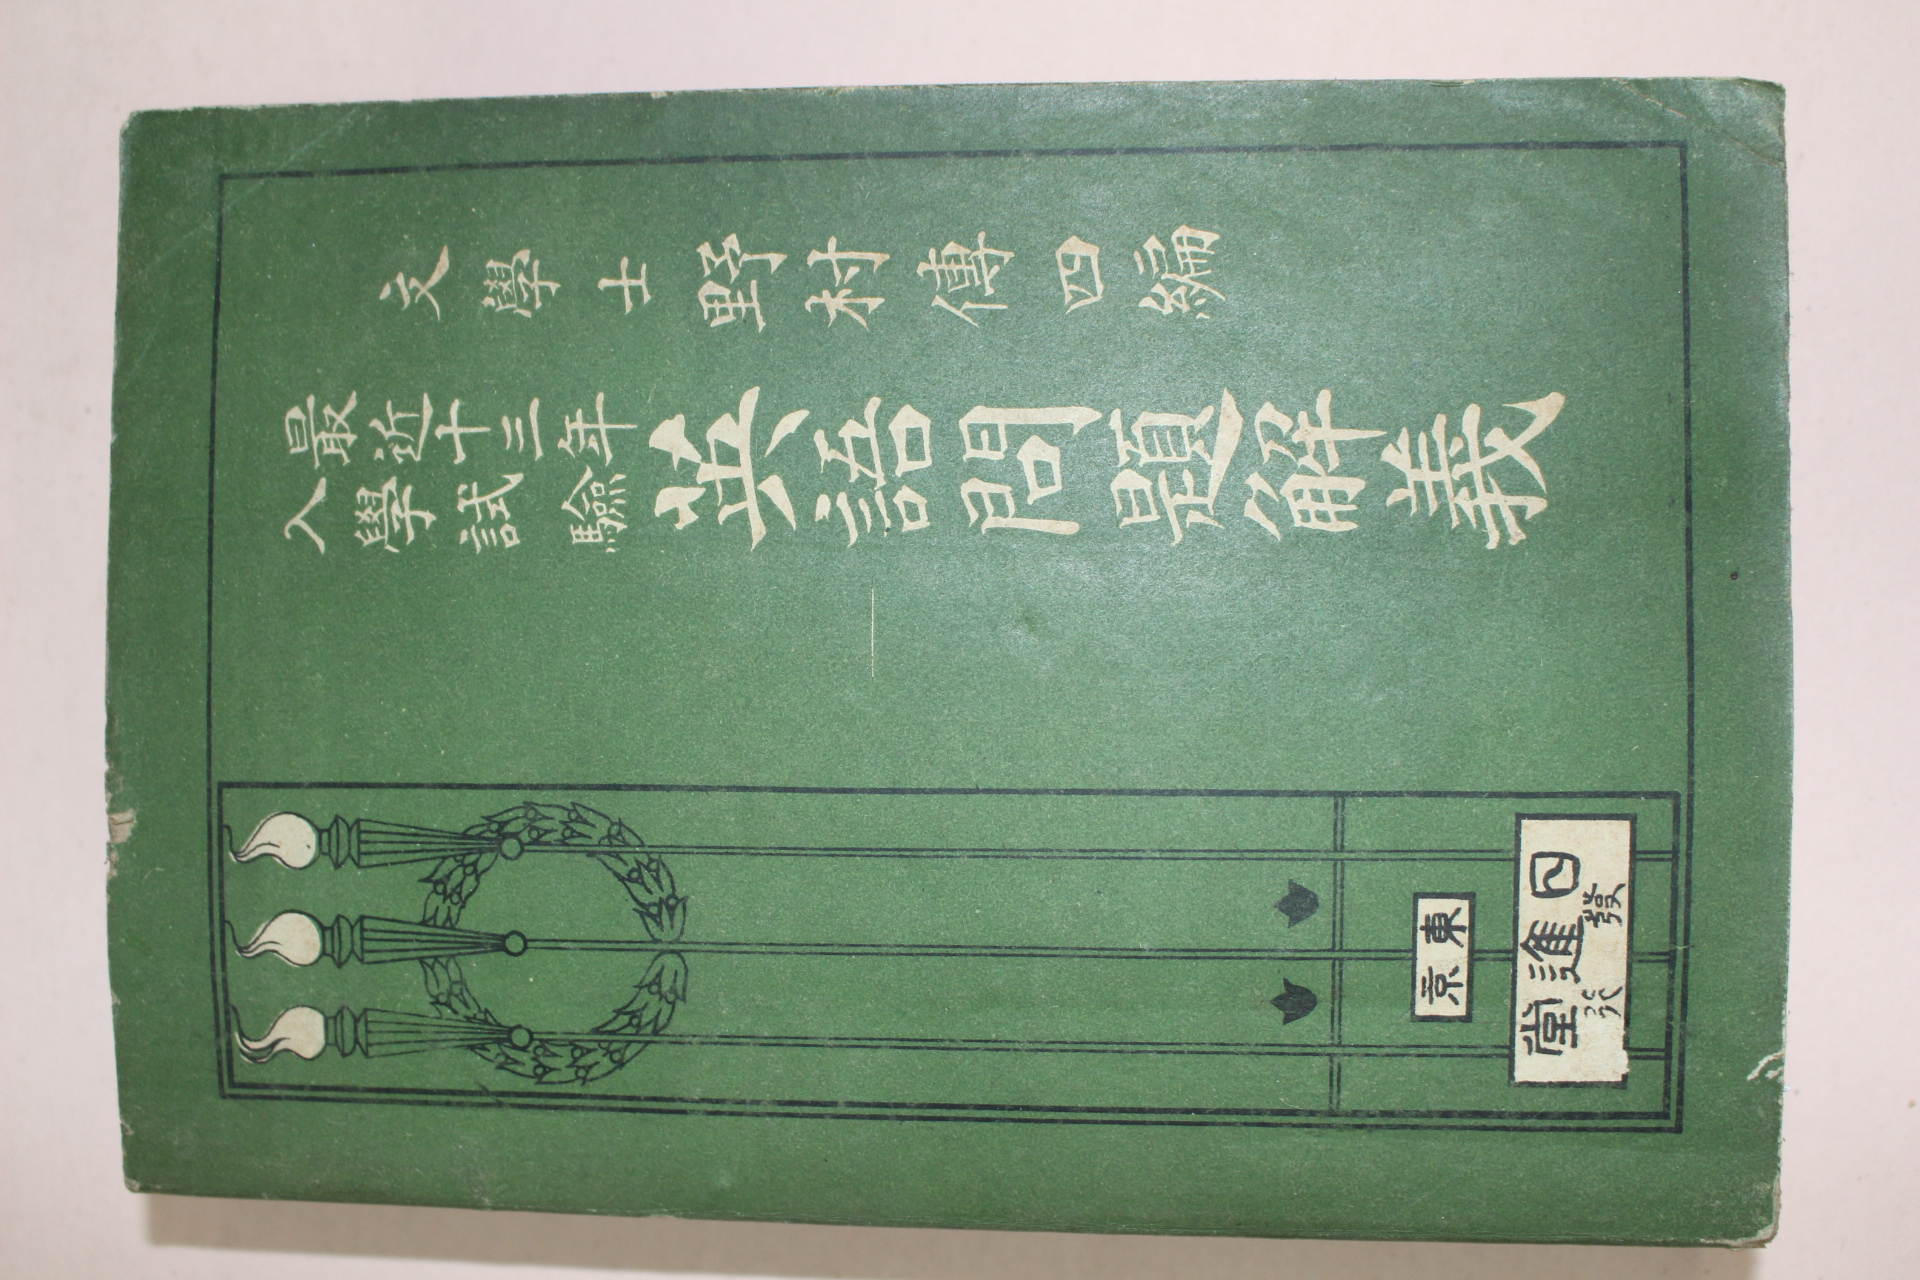 文學士野村傳四編
最近十三年
入學試驗
英語問題解義
東京
日進堂
發兌